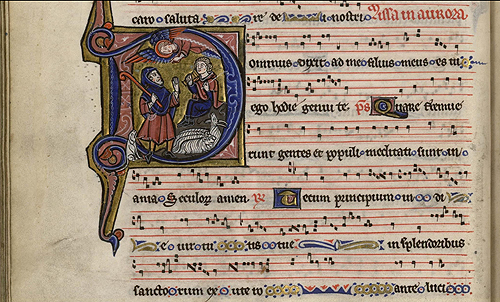 caro saluta re dei nostri Missa in aurora
Dominus dixit ad me filius meus es tu
ego hodie genui te ps Quare fremue
runt gentes et populi meditati sunt in
ania Seculorum amen Re Tecum principium in di
e uirtu tis tue in splendoribus
sanctorum ex utero ante luci